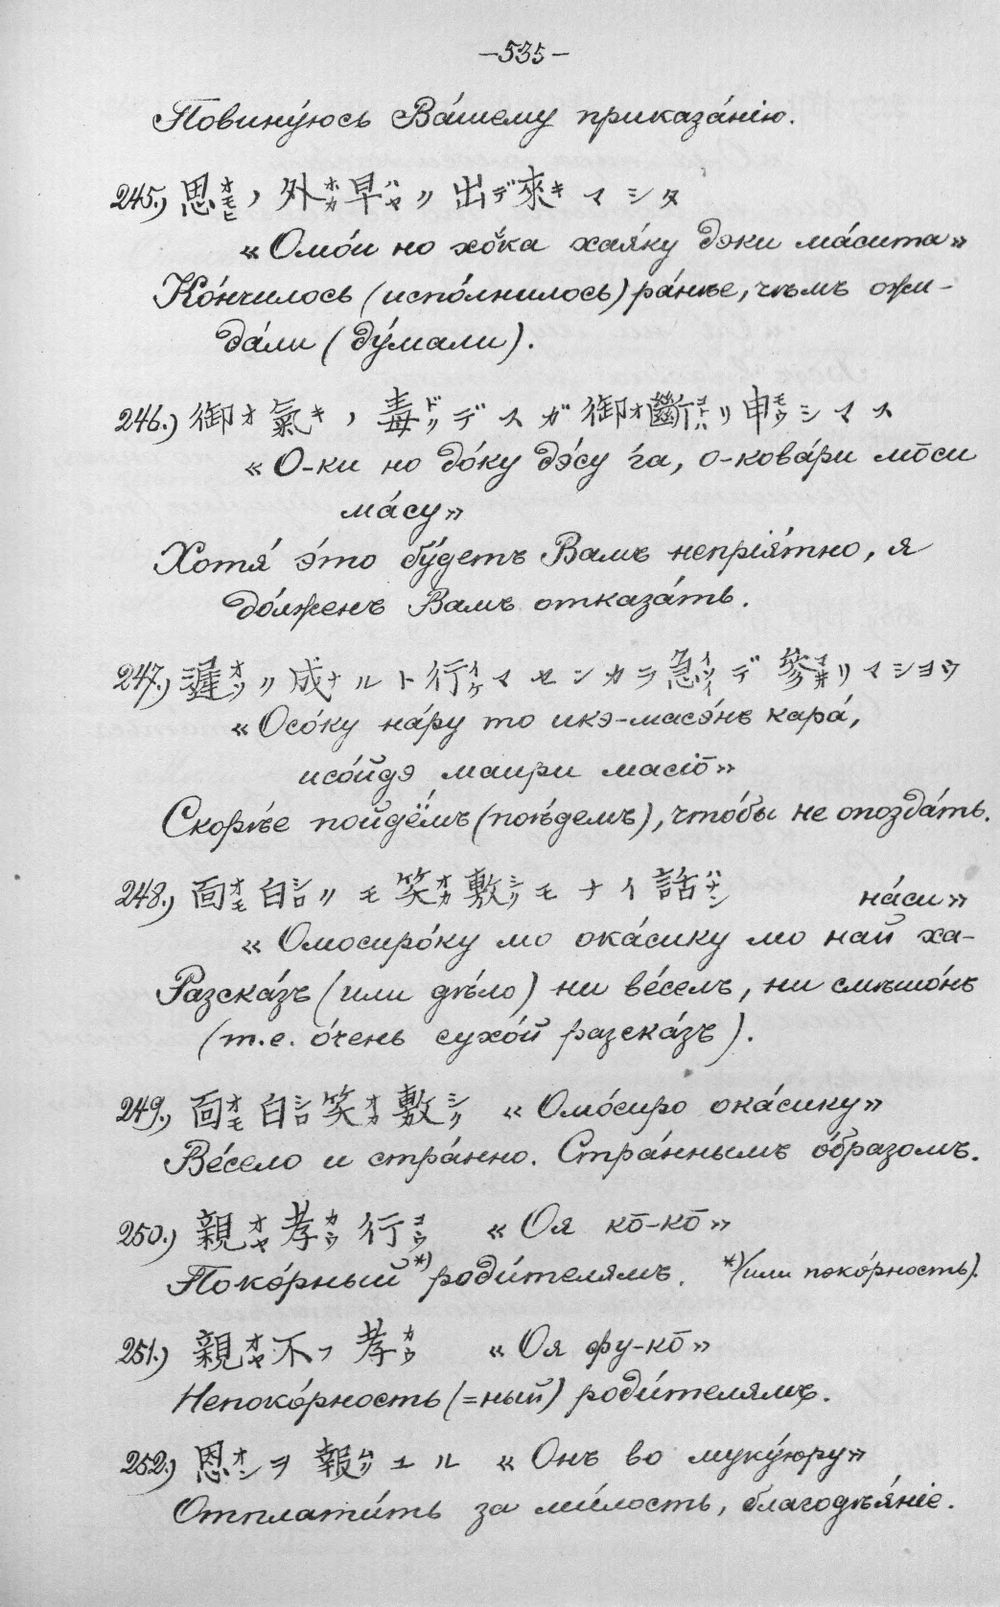 —535—
Повину́юсь Ва́шему приказа́нію.
245.) 思オモヒノ外ホカ早ハヤク出デ來キマシタ
«Омо́и но хо̆ка хая́ку дэки ма́сита»
Ко́нчилось (испо́лнилось) ра́нѣе, чѣмъ ожи-
да́ли (ду́мали).
246.) 御オ氣キノ毒ドクデスガ御オ斷コトハリ申モウシマス
«О-ки но до́ку дэ́су га, о-кова́ри мо̄си
ма́су»
Хотя́ э́то бу́детъ Вамъ непрія́тно, я
до́лженъ Вамъ отказа́ть.
247.) 遲オソク成ナルト行イケマセンカラ急イソイデ參マヰリマショウ
«Осо́ку на́ру то икэ-масэ́нъ кара́,
исо́йдэ маири масіо̄»
Скорѣ́е пойдёмъ (поѣ́демъ), что́бы не опозда́ть.
248.) 面オモ白シロクモ笑オカ敷シクモナイ話ハナシ
на́си»
«Омосиро́ку мо ока́сику мо най ха-
Разска́зъ (или дѣ́ло) ни ве́селъ, ни смѣшо́нъ
(т.е. о́чень сухо́й разска́зъ).
249.) 面オモ白シロ笑オカ敷シク «Омо́сиро ока́сику»
Ве́село и стра́нно. Стра́ннымъ о́бразомъ.
250.) 親オヤ孝カウ行コウ «Оя ко̄-ко̄»
Поко́рный *) роди́телямъ. *) (или поко́рность).
251.) 親オヤ不フ孝カウ «Оя фу-ко̄»
Непоко́рность (=ный) роди́телямъ.
252.) 恩オンヲ報ムクユル «Онъ во муку́юру»
Отплати́ть за ми́лость, благодѣя́ніе.